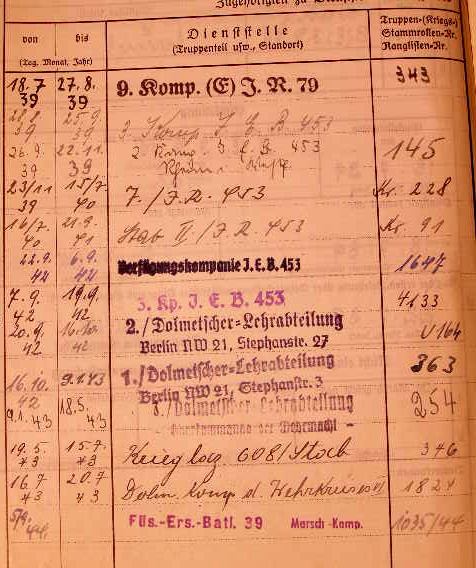 Zugehörigkeit zu Dienst
von bis
(Tag. Monat. Jahr)
Dienststelle
(Truppenteil usw., Standort)
Truppen-(Kriegs-)
Stammrollen-Nr.
Ranglisten-Nr.
18.7 27.8. 9. Komp. (E) J. R. 79 343
39 39
28.8 25.9 3. Komp. J. E. B. 453
39 39
26.9. 22.11. 2. Komp. J. E. B. 453 145
39 39
23/11 15/7 7./J.R. 453 Kr. 228
39 40
16/7 21.9. Stab II/J.R. 453 Kr. 91
40 41
22.9. 6.9. Verfügungskompanie J.E.B. 453 1647
42 42
7.9. 19.9. 3. Kp. J. E. B. 453 4133
42 42
20.9. 2./Dolmetscher=Lehrabteilung
42 42 Berlin NW 21, Stephanstr. 27
1./Dolmetscher=Lehrabteilung 363
16.10. 9.1.43 Berlin NW 21, Stephanstr. 3
42 18.5. Dolmetscher-Lehrabteilung 254
9.1.43 43 der Wehrmacht -
19.5. 15.7. Krieg laz. 608/Stab 346
43 43
16.7 20.7 Dolm. Komp. d. Wehrkreises VI 1824
43 43
Füs.-Ers.-Batl. 39 Marsch-Komp. 1035/44